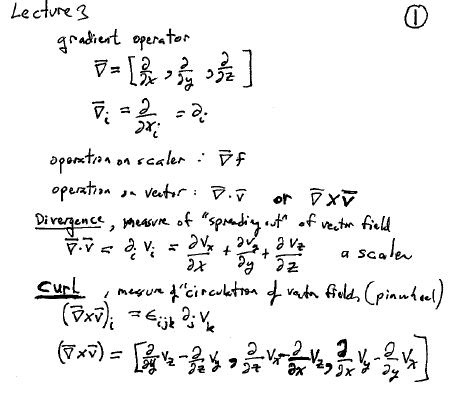 Lecture 3 ①
gradient operator
∇⃗ = [∂/∂x, ∂/∂y, ∂/∂z]
∇⃗ᵢ = ∂/∂xᵢ = ∂ᵢ
operation on scaler : ∇⃗f
operation on vector : ∇⃗·v⃗ or ∇⃗×v⃗
Divergence, measure of "spreading out" of vector field
∇⃗·v⃗ = ∂ᵢ vᵢ = ∂vₓ/∂x + ∂v_y/∂y + ∂v_z/∂z a scaler
Curl, measure of "circulation of vector field, (pinwheel)
(∇⃗×v⃗)ᵢ = ϵᵢⱼₖ ∂ⱼ vₖ
(∇⃗×v⃗) = [∂/∂y v_z - ∂/∂z v_y, ∂/∂z vₓ - ∂/∂x v_z, ∂/∂x v_y - ∂/∂y vₓ]